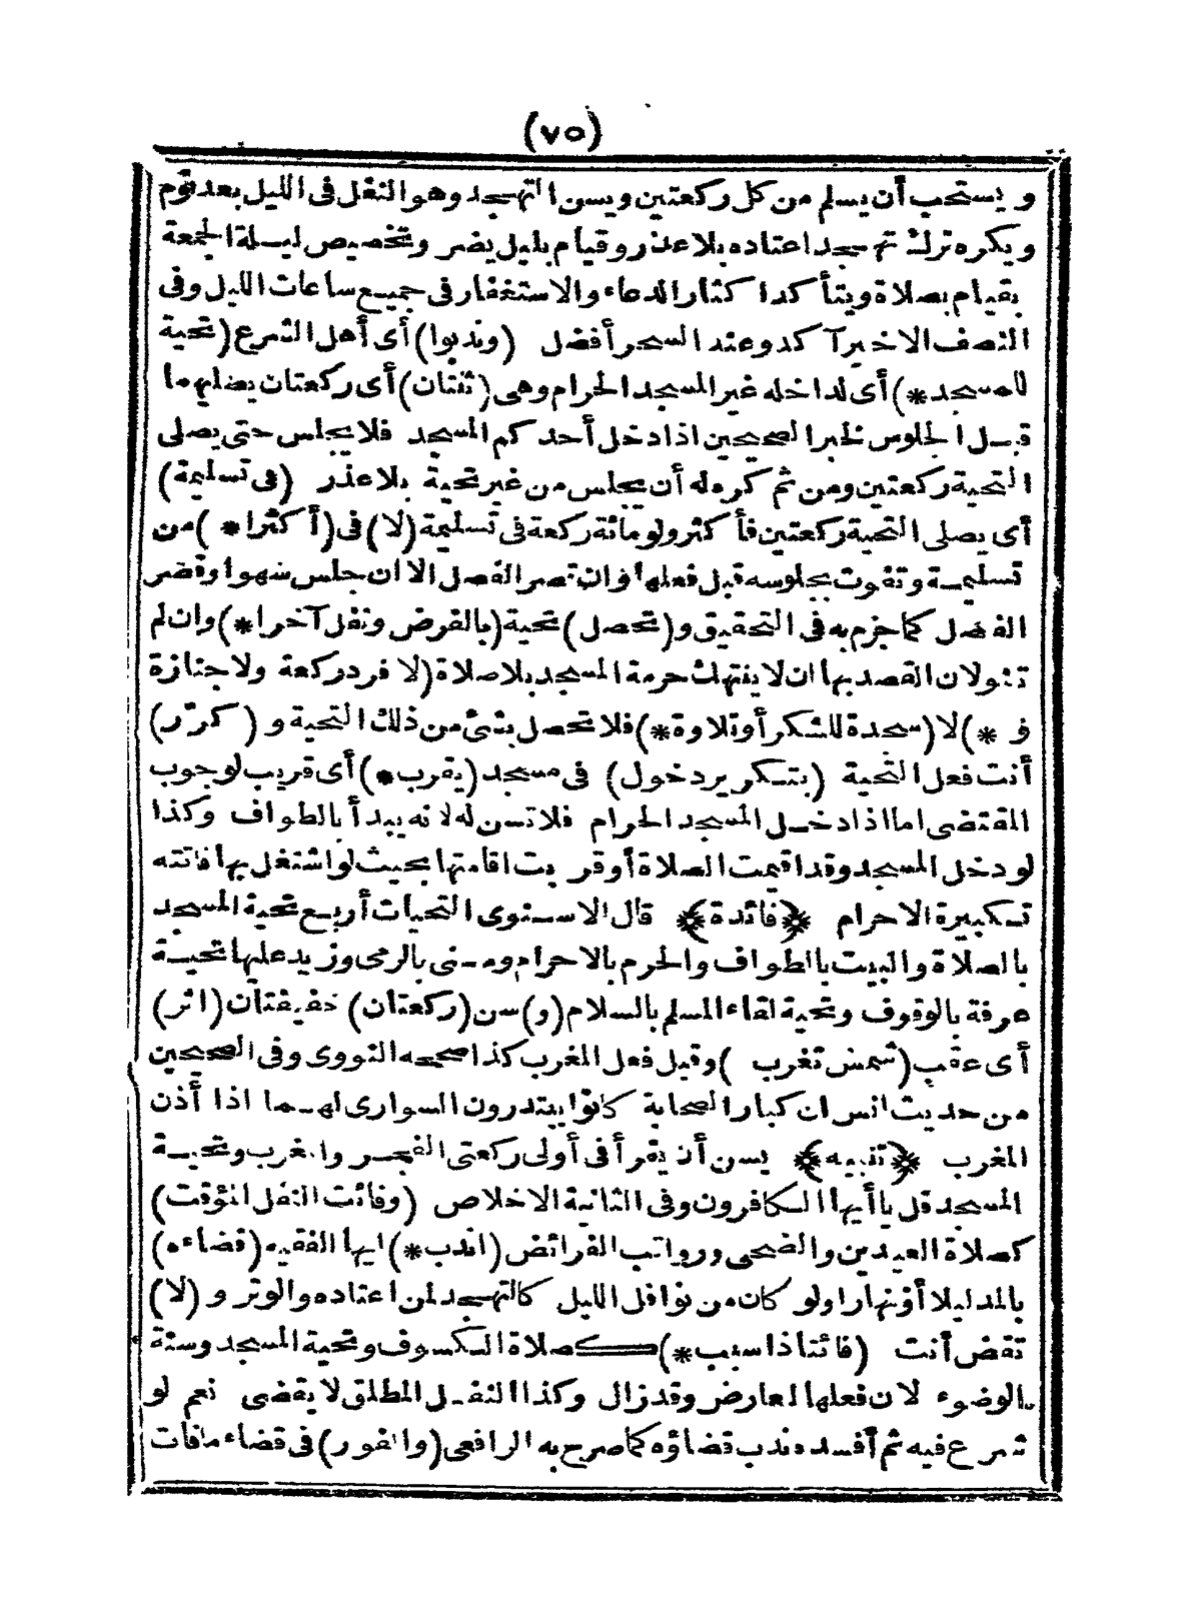 (٧٥)
ويستحب أن يسلم من كل ركعتين ويسن التهجد وهو النفل فى الليل بعد نوم
ويكره ترك تهجد اعتاده بلا عذر وقيام بليل يضر وتخصيص ليلة الجمعة
بقيام بصلاة ويتأكد اكثار الدعاء والاستغفار فى جميع ساعات الليل وفى
النصف الاخير آكد وعند السحر أفضل (وندبوا) أى أهل الشرع (تحية
للمسجد *) أى لداخله غير المسجد الحرام وهى (ثنتان) أى ركعتان يصليهما
قبل الجلوس لخبر الصحيحين اذا دخل أحدكم المسجد فلا يجلس حتى يصلى
التحية ركعتين ومن ثم كره له أن يجلس من غير تحية بلا عذر (فى تسليمة)
أى يصلى التحية ركعتين فأكثر ولو مائة ركعة فى تسليمة (لا) فى (أكثرا * ) من
تسليمة وتفوت بجلوسه قبل فعلها وان قصر الفصل الا ان جلس سهوا وقصر
الفصل كما جزم به فى التحقيق و(تحصل) تحية (بالفرض ونفل آخرا *) وان لم
تنو لان القصد بها ان لا ينتهك حرمة المسجد بلا صلاة (لا فرد ركعة ولا جنازة
و * ) لا (سجدة للشكر أو تلاوة *) فلا تحصل بشئ من ذلك التحية و (كرّر)
أنت فعل التحية (بتكرير دخول) فى مسجد (يقرب *) أى قريب لوجوب
المقتضى اما اذا دخل المسجد الحرام فلا تسن له لانه يبدأ بالطواف وكذا
لو دخل المسجد وقد اقيمت الصلاة أو قربت اقامتها بحيث لو اشتغل بها فاتته
تكبيرة الاحرام ﴿فائدة﴾ قال الاسنوى التحيات أربع تحية المسجد
بالصلاة والبيت بالطواف والحرم بالاحرام ومنى بالرمى وزيد عليها تحية
عرفة بالوقوف وتحية لقاء المسلم بالسلام (و) سن (ركعتان) خفيفتان (اثر)
أى عقب (شمس تغرب ) وقبل فعل المغرب كذا صححه النووى وفى الصحيحين
من حديث انس ان كبار الصحابة كانوا يبتدرون السوارى لهما اذا أذن
المغرب ﴿تنبيه﴾ يسن أن يقرأ فى أولى ركعتى الفجر والمغرب وتحية
المسجد قل يا أيها الكافرون وفى الثانية الاخلاص (وفائت النفل المؤقت)
كصلاة العيدين والضحى ورواتب الفرائض (اندب *) ايها الفقيه (قضاءه)
بالمد ليلا أو نهارا ولو كان من نوافل الليل كالتهجد لمن اعتاده والوتر و (لا)
تقض أنت (فائتا ذا سبب *) كصلاة الكسوف وتحية المسجد وسنة
الوضوء لان فعلها لعارض وقد زال وكذا النفل المطلق لا يقضى نعم لو
شرع فيه ثم أفسده ندب قضاؤه كما صرح به الرافعى (والفور) فى قضاء ما فات